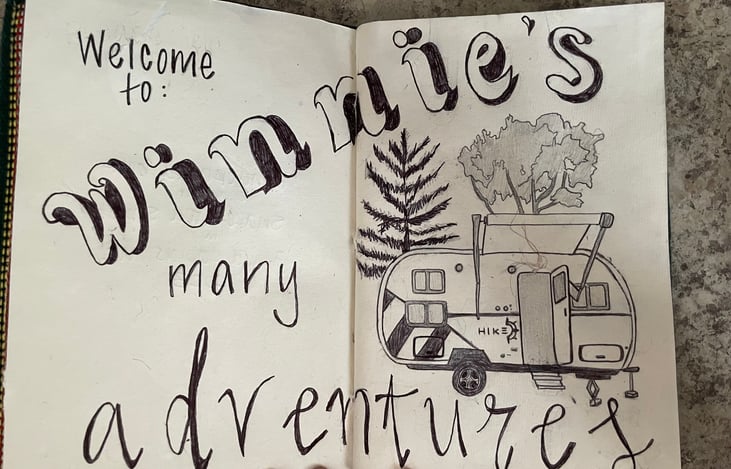 Welcome
to:
Winnie's
many
HIKE
adventures